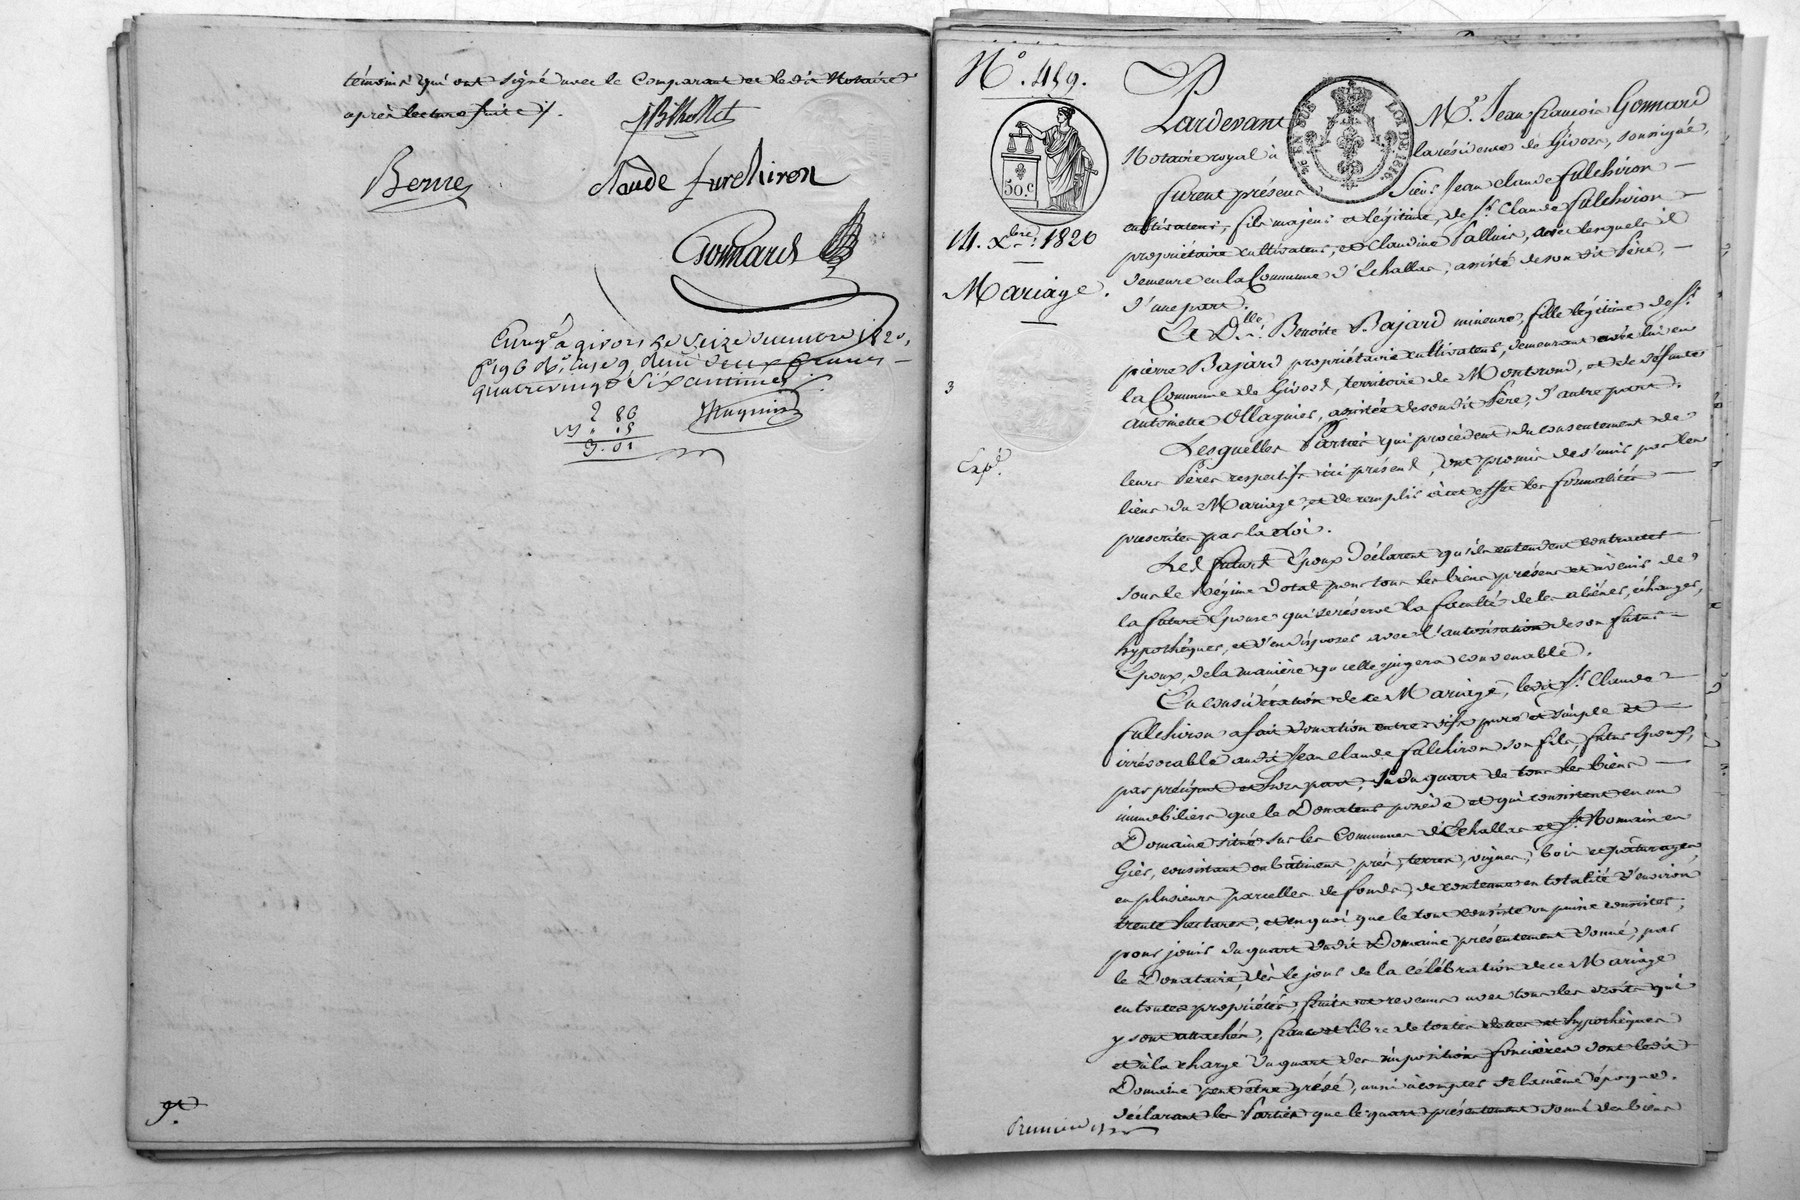 témoins qui ont signé avec le Comparant et ledit Notaire
après lecture faite ./.
JB thollet
Berne
Claude furchiron
Gonnard
Enreg.é à givors le seize decembre 1820,
f.° 196 R.° case 9, deux francs
quatrevingt six centimes
2 86
29
3. 01
N.° 459.
50.c
14. Xbre 1820
Mariage.
3
Exp.é
EN SUS
LOI DE 1816.
Pardevant M.e Jean françois Gonnard
Notaire royal à la résidence de Givors, soussigné,
furent présens Sieur Jean claude fulchiron
cultivateur, fils majeur et légitime, de S.r Claude fulchiron
propriétaire cultivateur, et Claudine Palluis, avec lesquels il
demeure en la Commune d'Echallas, assisté de son dit Père,
d'une part.
Et D.lle Benoîte Bajard mineure, fille légitime de S.r
pierre Bajard propriétaire cultivateur, demeurant avec lui en
la Commune de Givors, territoire de Montrond, et de défunte
antoinette Ollagnier, assistée de son dit Père, d'autre part.
Lesquelles Parties qui procèdent du consentement de
leurs Pères respectifs ici présens, ont promis de s'unir par les
liens du Mariage, et de remplir à cet effet les formalités
prescrites par la Loi.
Les futurs Epoux déclarent qu'ils entendent contracter
sous le Régime dotal pour tous les biens présens et avenir de
la future Epouse qui se réserve la faculté de les aliéner, échanger,
hypothéquer, et d'en disposer avec l'autorisation de son futur
Epoux, de la manière qu'elle jugera convenable.
En considération de ce Mariage, ledit S.r Claude
fulchiron a fait donation entre vifs pure et simple et
irrévocable audit Jean claude fulchiron son fils, futur Epoux,
par préciput et hors part, du quart de tous les biens
immobiliers que le Donateur possède et qui consistent en un
Domaine situé sur les Communes d'Echallas et S.t Romain en
Gier, consistant en bâtiment, prés, terres, vignes, bois et pâturages,
en plusieurs parcelles de fonds, de contenue en totalité d'environ
trente hectares, et en quoi que le tout consiste ou puisse consister,
pour jouir du quart dudit Domaine présentement donné, par
le Donataire, dès le jour de la célébration de ce Mariage
en toutes propriétés, fruits et revenus avec tous les droits qui
y sont attachés, franc et libre de toutes dettes et hypothèques
et à la charge du quart des impositions foncières dont ledit
Domaine peut être grévé, aussi à compter de la même époque.
déclarant les Parties que le quart présentement donné des biens